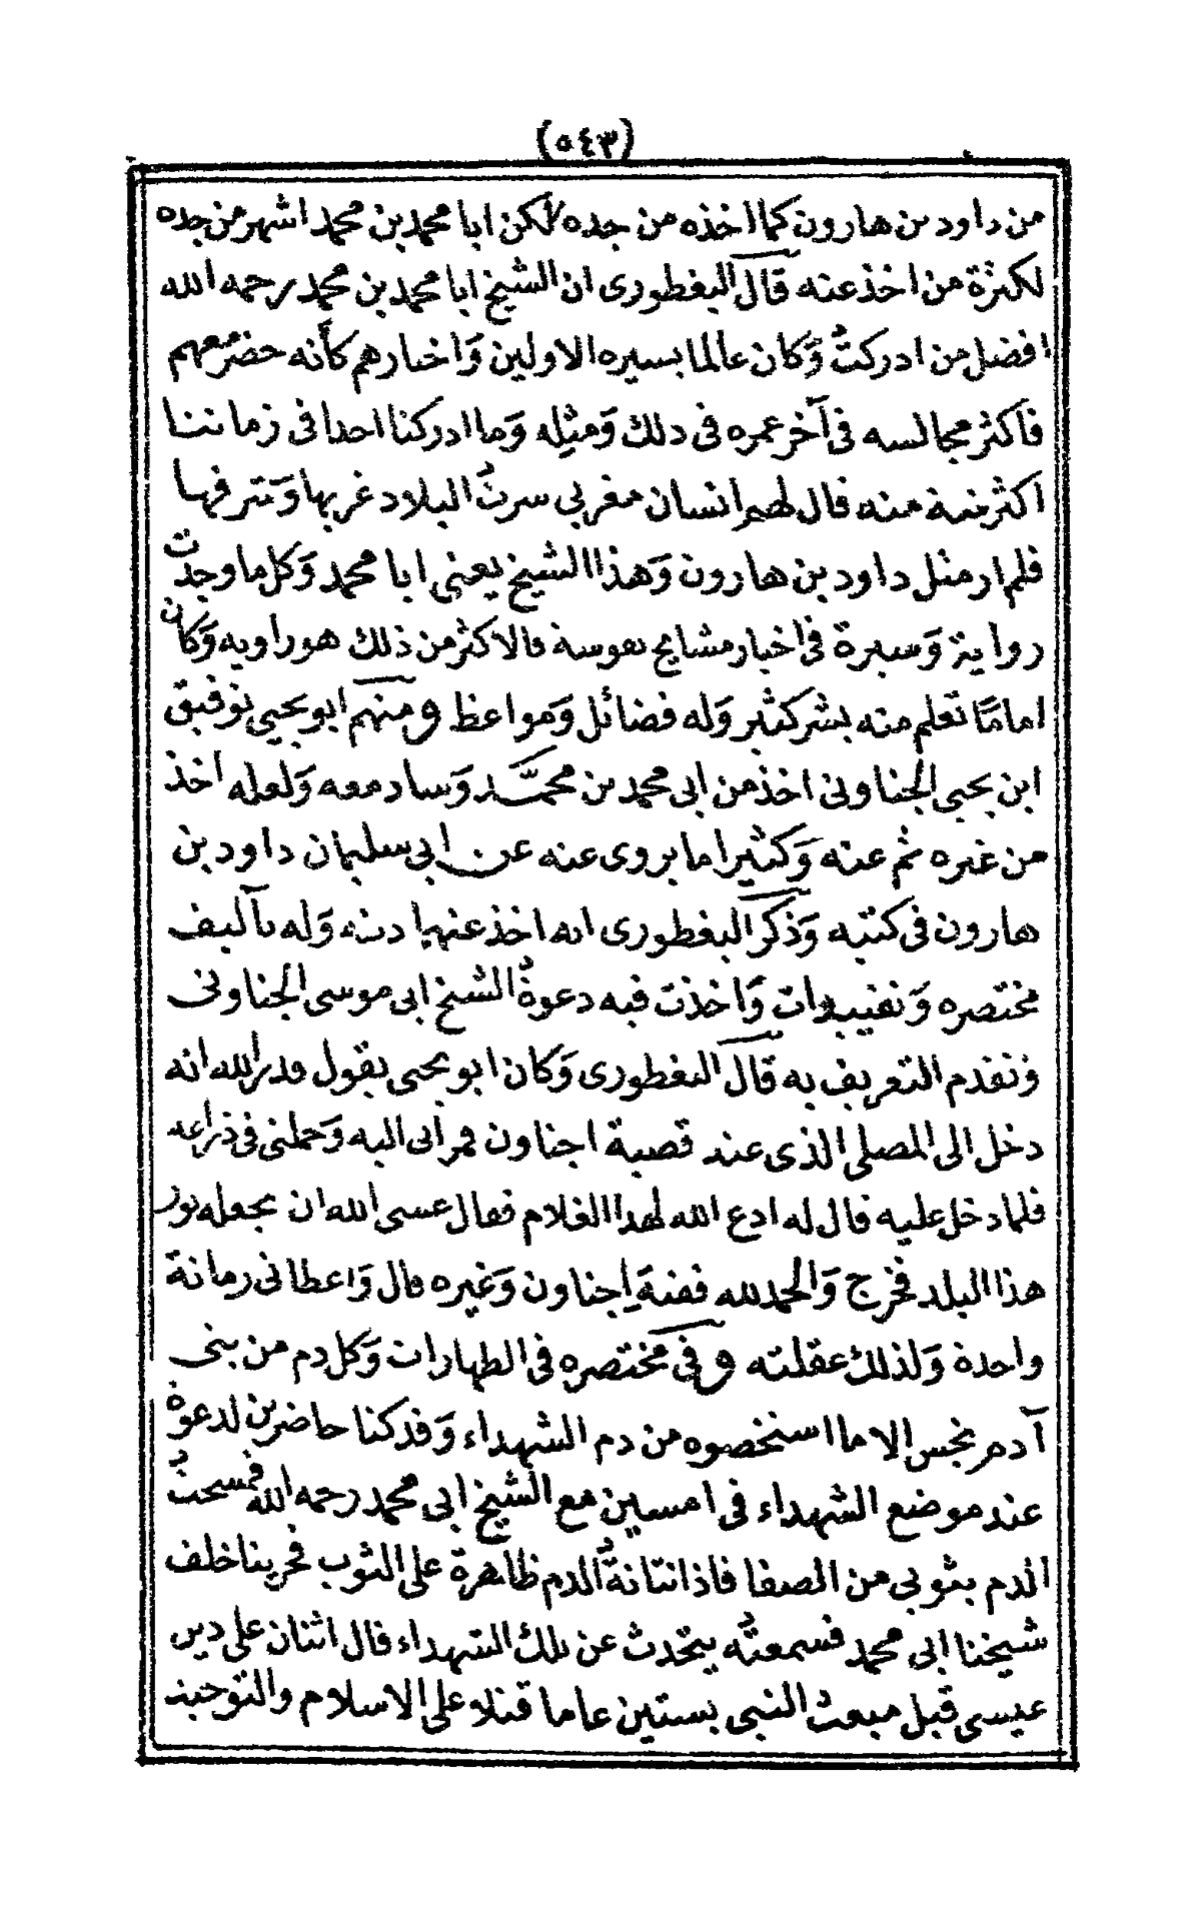 (٥٤٣)
من داود بن هارون كما اخذه من جده لكن ابا محمد بن محمد اشهر من جده
لكثرة من اخذ عنه قال البغطورى ان الشيخ ابا محمد بن محمد رحمه الله
افضل من ادركتُ وَكان عالما بسيره الاولين وَاخبارهم كأنه حضر معهم
فأكثر مجالسه فى آخر عمره فى ذلك وَمثله وَما ادركنا احدا فى زماننا
اكثر منه قال لهم انسان مغربي سرتُ البلاد غربها وَشرقها
فلم ار مثل داود بن هارون وَهذا الشيخ يعنى ابا محمد وَكل ما وجدت
رواية وَسيرة فى اخبار مشايخ نفوسة فالاكثر من ذلك هو راويه وَكان
اماما تعلم منه بشر كثير وَله فضائل وَمواعظ ومنهم ابو يحيى توفيق
ابن يحيى الجناونى اخذ من ابى محمد بن محمَّد وَساد معه وَلعله اخذ
من غيره ثم عنه وَكثيرا ما يروى عنه عن ابي سليمان داود بن
هارون فى كتبه وَذكر البغطورى انه اخذ عنهما دينه وَله تآليف
مختصره وَتقييدات وَاخذت فيه دعوةُ الشيخ ابى موسى الجناونى
وَتقدم التعريف به قال البغطورى وَكان ابو يحيى يقول قدر الله انه
دخل الى المصلى الذى عند قصبة اجناون فمر ابى اليه وَحملنى فى ذراعه
فلما دخل عليه قال له ادع الله لهذا الغلام فقال عسى الله ان يجعله نور
هذا البلد فخرج وَالحمد لله فقنةَ اِجناون وَغيره قال وَاعطانى رمانة
واحدة وَلذلك عقلته وفى مختصره فى الطهارات وَكل دم من بنى
آدم نجس الا ما استخصوه من دم الشهداء وَقد كنا حاضرين لدعوة
عند موضع الشهداء فى امسين مع الشيخ ابى محمد رحمه الله فمسحتُ
الدم بثوبي من الصفا فاذا نتانةُ الدم ظاهرة على الثوب فجرينا خلف
شيخنا ابى محمد فسمعتُه يتحدث عن تلك الشهداء قال اثنان على دين
عيسى قبل مبعث النبى بستين عاما قتلا على الاسلام والتوحيد